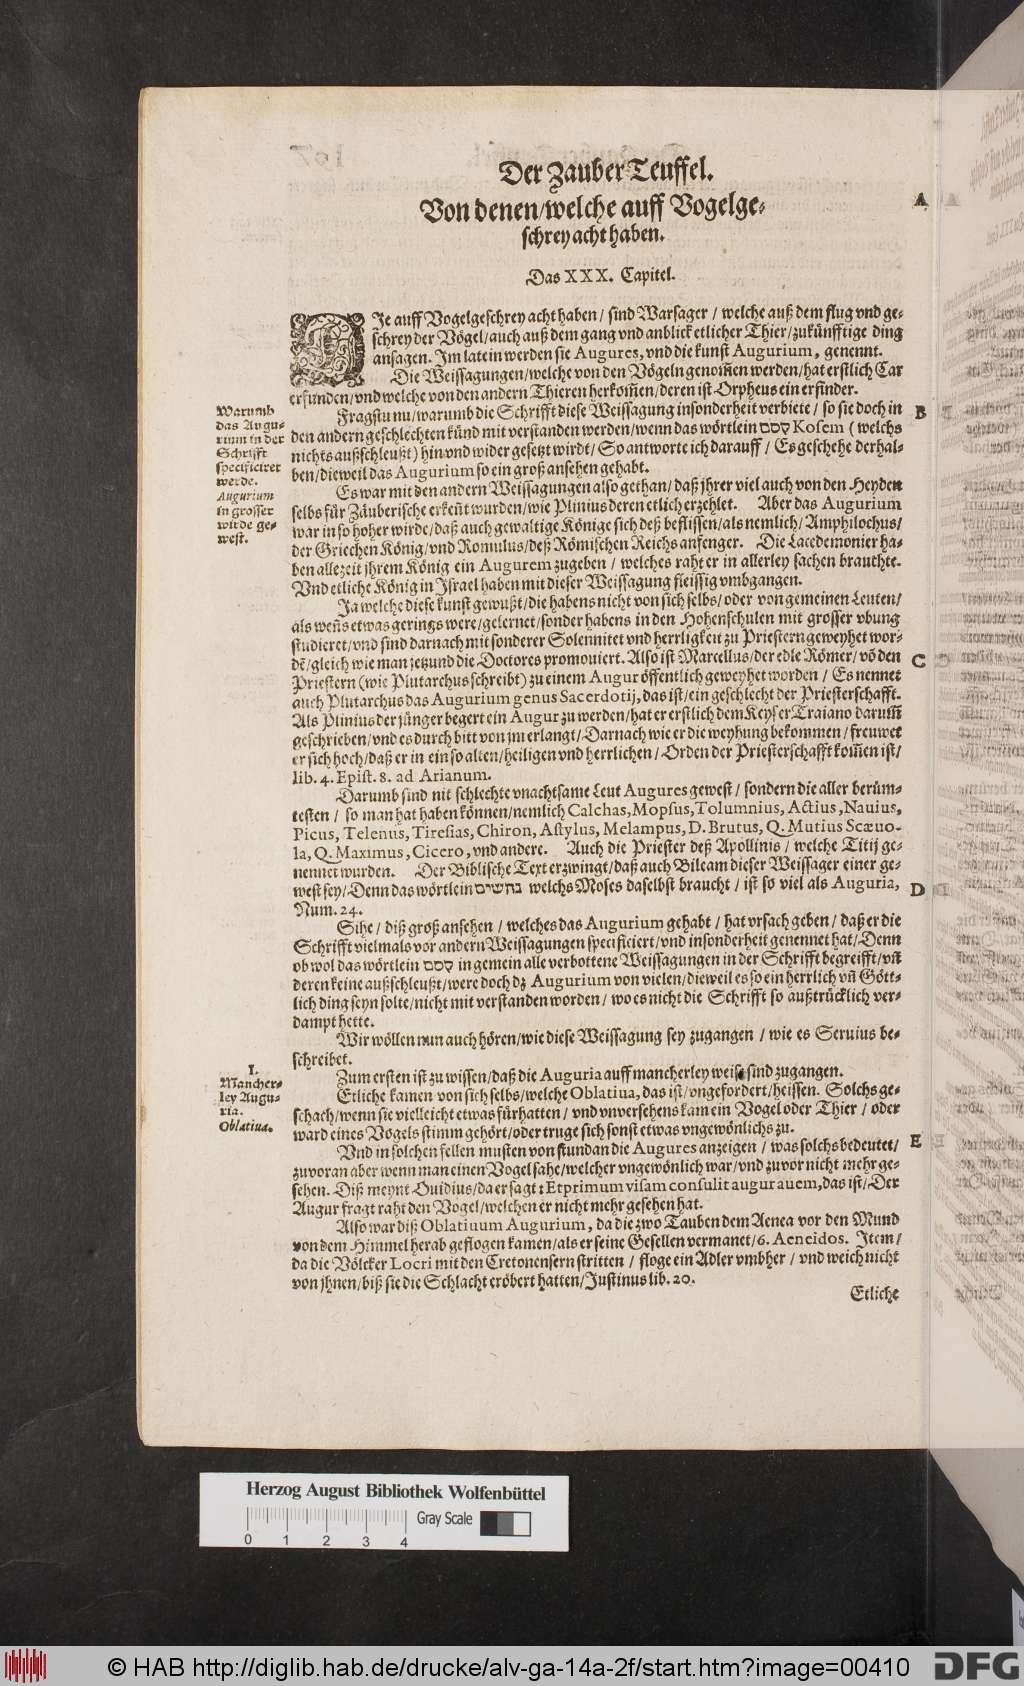 Der Zauber Teuffel.
Von denen/welche auff Vogelge-
schrey acht haben.
Das XXX. Capitel.
DIe auff Vogelgeschrey acht haben / sind Warsager / welche auß dem flug vnd ge-
schrey der Vögel/auch auß dem gang vnd anblick etlicher Thier/zukünfftige ding
ansagen. Im latein werden sie Augures, vnd die kunst Augurium, genennt.
Die Weissagungen/welche von den Vögeln genom̃en werden/hat erstlich Car
erfunden/vnd welche von den andern Thieren herkom̃en/deren ist Orpheus ein erfinder.
Fragstu nu/warumb die Schrifft diese Weissagung insonderheit verbiete / so sie doch in
den andern geschlechten künd mit verstanden werden/wenn das wörtlein קסם Kosem ( welchs
nichts außschleußt) hin vnd wider gesetzt wirdt/ So antworte ich darauff / Es geschehe derhal-
ben/dieweil das Augurium so ein groß ansehen gehabt.
Es war mit den andern Weissagungen also gethan/ daß jhrer viel auch von den Heyden
selbs für Zäuberische erkeñt wurden/wie Plinius deren etlich erzehlet. Aber das Augurium
war in so hoher wirde/daß auch gewaltige Könige sich deß beflissen/als nemlich/ Amphilochus/
der Griechen König/vnd Romulus/deß Römischen Reichs anfenger. Die Lacedemonier ha-
ben allezeit jhrem König ein Augurem zugeben / welches raht er in allerley sachen brauchte.
Vnd etliche König in Israel haben mit dieser Weissagung fleissig vmbgangen.
Ja welche diese kunst gewußt/die habens nicht von sich selbs/ oder von gemeinen Leuten/
als weñs etwas gerings were/gelernet/sonder habens in den Hohenschulen mit grosser vbung
studieret/vnd sind darnach mit sonderer Solennitet vnd herrligkeit zu Priestern geweyhet wor-
dẽ/gleich wie man jetzund die Doctores promouiert. Also ist Marcellus/der edle Römer/võ den
Priestern (wie Plutarchus schreibt) zu einem Augur öffentlich geweyhet worden / Es nennet
auch Plutarchus das Augurium genus Sacerdotij, das ist/ein geschlecht der Priesterschafft.
Als Plinius der jünger begert ein Augur zu werden/hat er erstlich dem Keyser Traiano darum̃
geschrieben/vnd es durch bitt von jm erlangt/Darnach wie er die weyhung bekommen / frewet
er sich hoch/daß er in ein so alten/heiligen vnd herrlichen/ Orden der Priesterschafft kom̃en ist/
lib. 4. Epist. 8. ad Arianum.
Darumb sind nit schlechte vnachtsame Leut Augures gewest / sondern die aller berüm-
testen / so man hat haben können/nemlich Calchas, Mopsus, Tolumnius, Actius, Nauius,
Picus, Telenus, Tiresias, Chiron, Astylus, Melampus, D. Brutus, Q. Mutius Scæuo-
la, Q. Maximus, Cicero, vnd andere. Auch die Priester deß Apollinis / welche Titij ge-
nennet wurden. Der Biblische Text erzwingt/daß auch Bileam dieser Weissager einer ge-
west sey/Denn das wörtlein נחשים welchs Moses daselbst braucht / ist so viel als Auguria,
Num. 24.
Sihe / diß groß ansehen / welches das Augurium gehabt / hat vrsach geben / daß er die
Schrifft vielmals vor andern Weissagungen specificiert/vnd insonderheit genennet hat/Denn
ob wol das wörtlein קסם in gemein alle verbottene Weissagungen in der Schrifft begreifft/vñ
deren keine außschleußt/were doch dz Augurium von vielen/dieweil es so ein herrlich vñ Gött-
lich ding seyn solte/nicht mit verstanden worden / wo es nicht die Schrifft so außtrücklich ver-
dampt hette.
Wir wöllen nun auch hören/wie diese Weissagung sey zugangen / wie es Seruius be-
schreibet.
Zum ersten ist zu wissen/daß die Auguria auff mancherley weise sind zugangen.
Etliche kamen von sich selbs/welche Oblatiua, das ist/vngefordert/heissen. Solchs ge-
schach/wenn sie vielleicht etwas fürhatten / vnd vnversehens kam ein Vogel oder Thier / oder
ward eines Vogels stimm gehört/oder truge sich sonst etwas vngewönlichs zu.
Vnd in solchen fellen musten von stundan die Augures anzeigen / was solchs bedeutet/
zuvoran aber wenn man einen Vogel sahe/welcher vngewönlich war/vnd zuvor nicht mehr ge-
sehen. Diß meynt Ouidius/da er sagt: Et primum visam consulit augur auem, das ist/Der
Augur fragt raht den Vogel/welchen er nicht mehr gesehen hat.
Also war diß Oblatiuum Augurium, da die zwo Tauben dem Aenea vor den Mund
von dem Himmel herab geflogen kamen/als er seine Gesellen vermanet/6. Aeneidos. Item/
da die Völcker Locri mit den Cretonensern stritten / floge ein Adler vmbher / vnd weich nicht
von jhnen/biß sie die Schlacht eröbert hatten/Justinus lib. 20.
Etliche
Warumb
das Augu-
rium in der
Schrifft
specificiret
werde.
Augurium
in grosser
wirde ge-
west.
I.
Mancher-
ley Augu-
ria.
Oblatiua.
A
B
C
D
E
Herzog August Bibliothek Wolfenbüttel
Gray Scale
0 1 2 3 4
© HAB http://diglib.hab.de/drucke/alv-ga-14a-2f/start.htm?image=00410
DFG